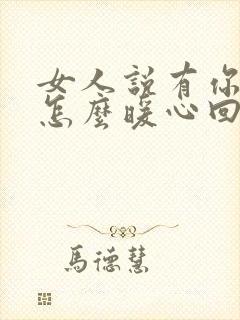 女人說有你
怎麼暖心回
馬德慧